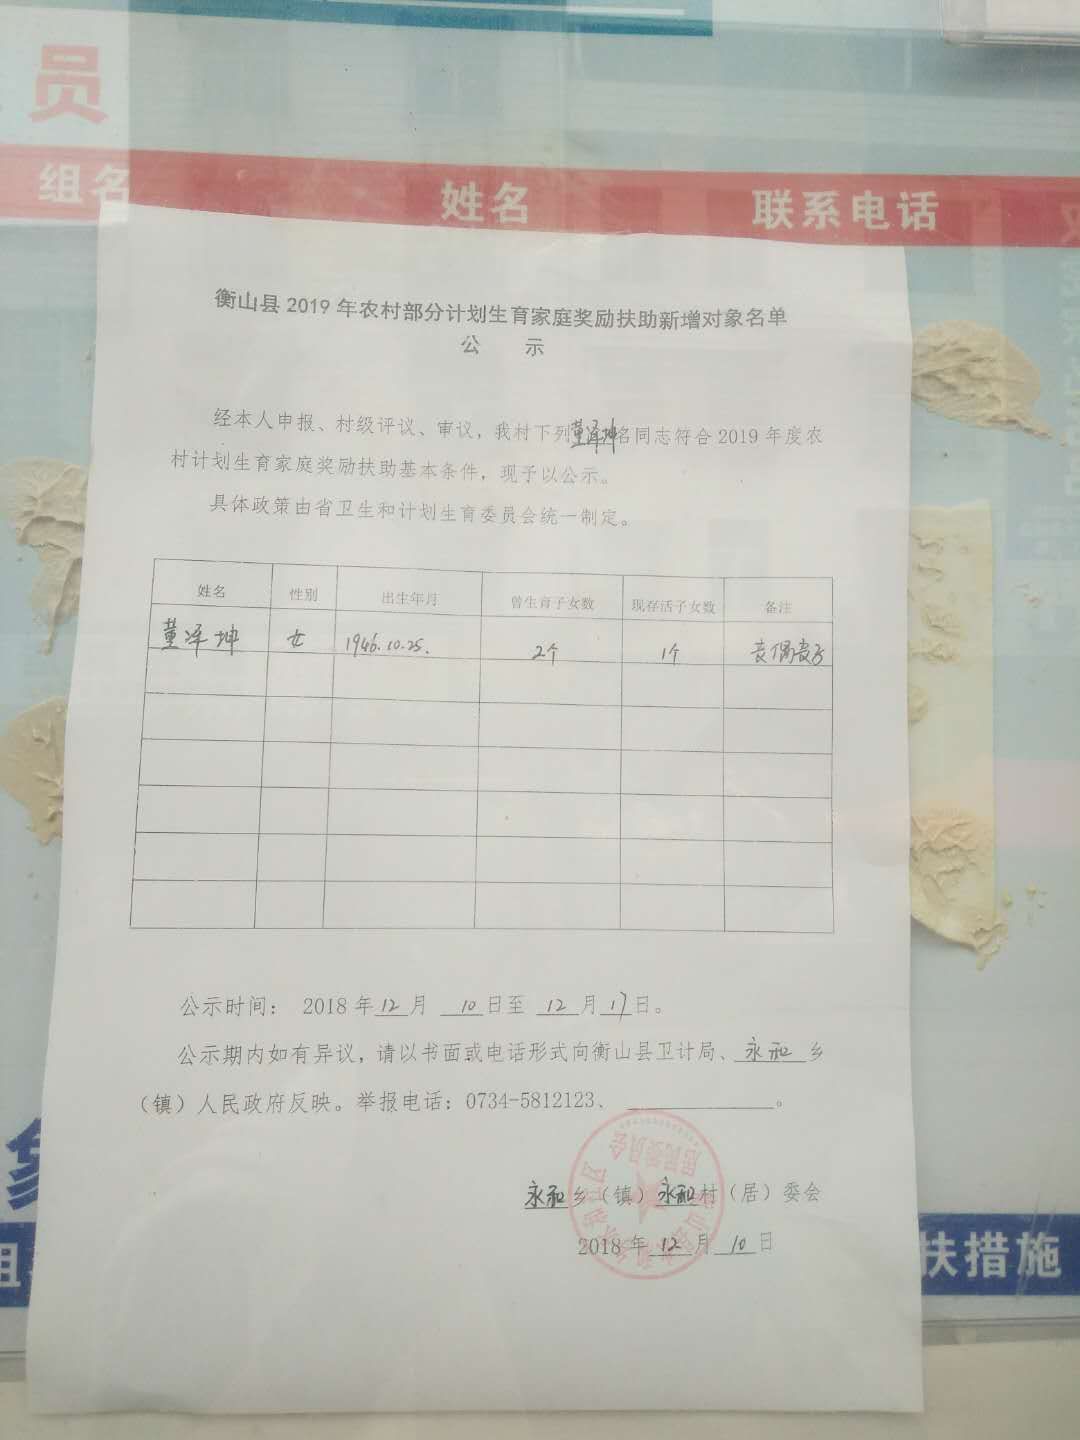 员
组名 姓名 联系电话
衡山县2019年农村部分计划生育家庭奖励扶助新增对象名单
公 示
经本人申报、村级评议、审议，我村下列董泽坤名同志符合2019年度农
村计划生育家庭奖励扶助基本条件，现予以公示。
具体政策由省卫生和计划生育委员会统一制定。
姓名 性别 出生年月 曾生育子女数 现存活子女数 备注
董泽坤 女 1946.10.25. 2个 1个 丧偶丧子
公示时间： 2018年12月 10日至 12月17日。
公示期内如有异议，请以书面或电话形式向衡山县卫计局、永和乡
（镇）人民政府反映。举报电话：0734-5812123、 。
永和乡（镇）永和村（居）委会
2018年12月10日
居民委员会
扶措施